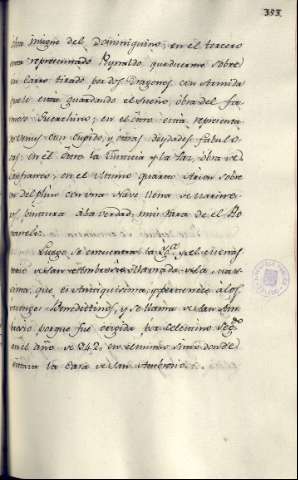 353.
obra insigne del Dominiquino; en el tercero
esta representado Reynaldo, que duerme sobre
un Carro tirado por dos Dragones, con Armida
que le está guardando el sueño, obra del fa-
moso Guerchino; en el otro está representa
Venus con Cupido, y otras deydades fabulo-
sas; en el otro la Justicia y la Paz, obra de
Lanfranco; en el ultimo quarto Arion sobre
un delphin con una Nave llena de marine-
ros, pintura á la verdad, mui rara de el
Luego se encuentra la Yglª. y el
de San llamada de la
que es Antiquissima, y pertenece á los
Monges Benedictinos, y se llama de San Am-
brosio porque fué erigida por Celestino Segdo.
en el año de 1242. en el mismo sitio donde
estaba la Casa de San Ambrosio.